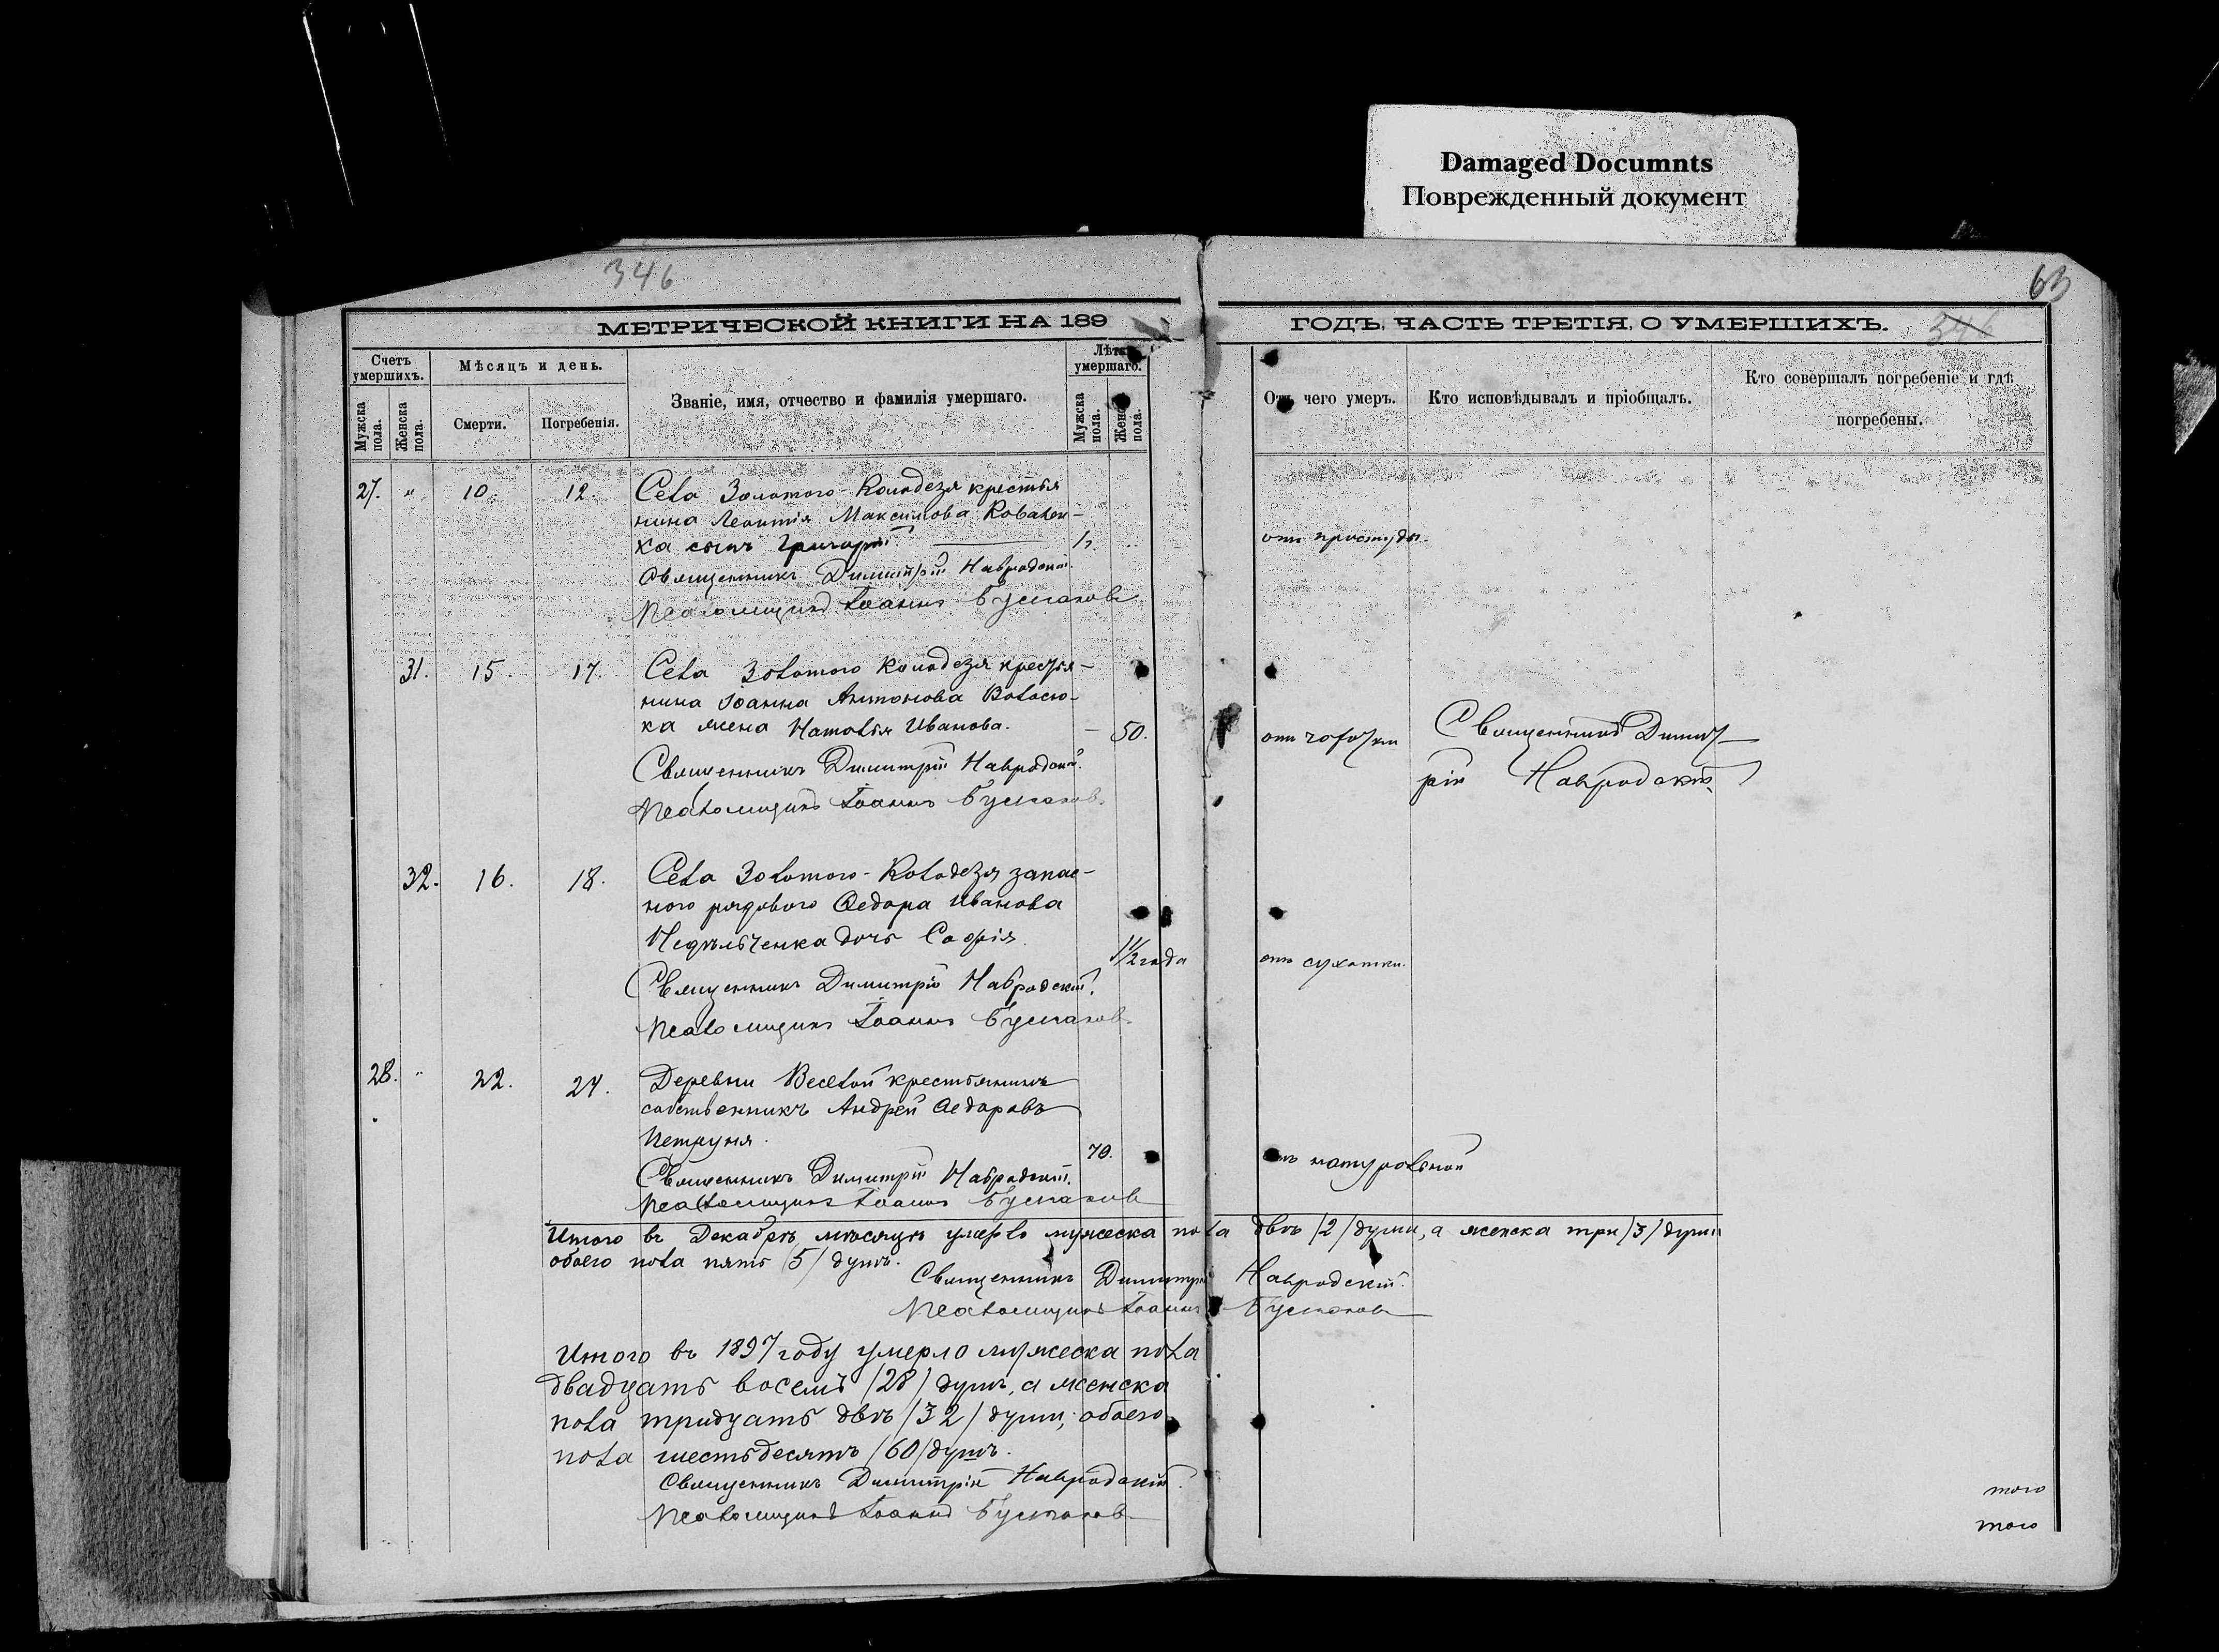 Damaged Documnts
Поврежденный документ
346
63
МЕТРИЧЕСКОЙ КНИГИ НА 189
ГОДЪ, ЧАСТЬ ТРЕТІЯ, О УМЕРШИХЪ.
346
Счетъ умершихъ.
Мужска пола.
Женска пола.
Мѣсяцъ и день.
Смерти.
Погребенія.
Званіе, имя, отчество и фамилія умершаго.
Лѣта умершаго.
Мужска пола.
Женска пола.
Отъ чего умеръ.
Кто исповѣдывалъ и пріобщалъ.
Кто совершалъ погребеніе и гдѣ
погребены.
27. " 10. 12. Села Золотого-Колодезя крестья
нина Леонтія Максимова Ковален-
ка сынъ Григорій отъ простуды.
Священникъ Димитрій Навродскій.
Псаломщикъ Іоаннъ
31. 15. 17. Села Золотого Колодезя крестья-
нина Іоанна Антонова Волосю-
ка жена Наталія Иванова. — 50. отъ чахотки Священникъ Димит-
рій Навродскій
Священникъ Димитрій Навродскій.
Псаломщикъ Іоаннъ
32. 16. 18. Села Золотого-Колодезя запас-
ного рядового Ѳедора Иванова
Недѣльченка дочь Софія. 1 1/2 года отъ сухотки.
Священникъ Димитрій Навродскій.
Псаломщикъ Іоаннъ
28. " 22. 24. Деревни Веселой крестьянинъ
собственникъ Андрей Ѳедоровъ
Петруня. 70. отъ натуральной
Священникъ Димитрій Навродскій.
Псаломщикъ Іоаннъ
Итого въ Декабрѣ мѣсяцѣ умерло мужеска пола двѣ /2/ души, а женска три /3/ души
обоего пола пять /5/ душъ.
Священникъ Димитрій Навродскій.
Псаломщикъ Іоаннъ
Итого въ 1897 году умерло мужеска пола
двадцать восемь /28/ душъ, а женска
пола тридцать двѣ /32/ души, обоего
пола шестьдесятъ /60/ душъ.
Священникъ Димитрій Навродскій.
Псаломщикъ Іоаннъ
того
того